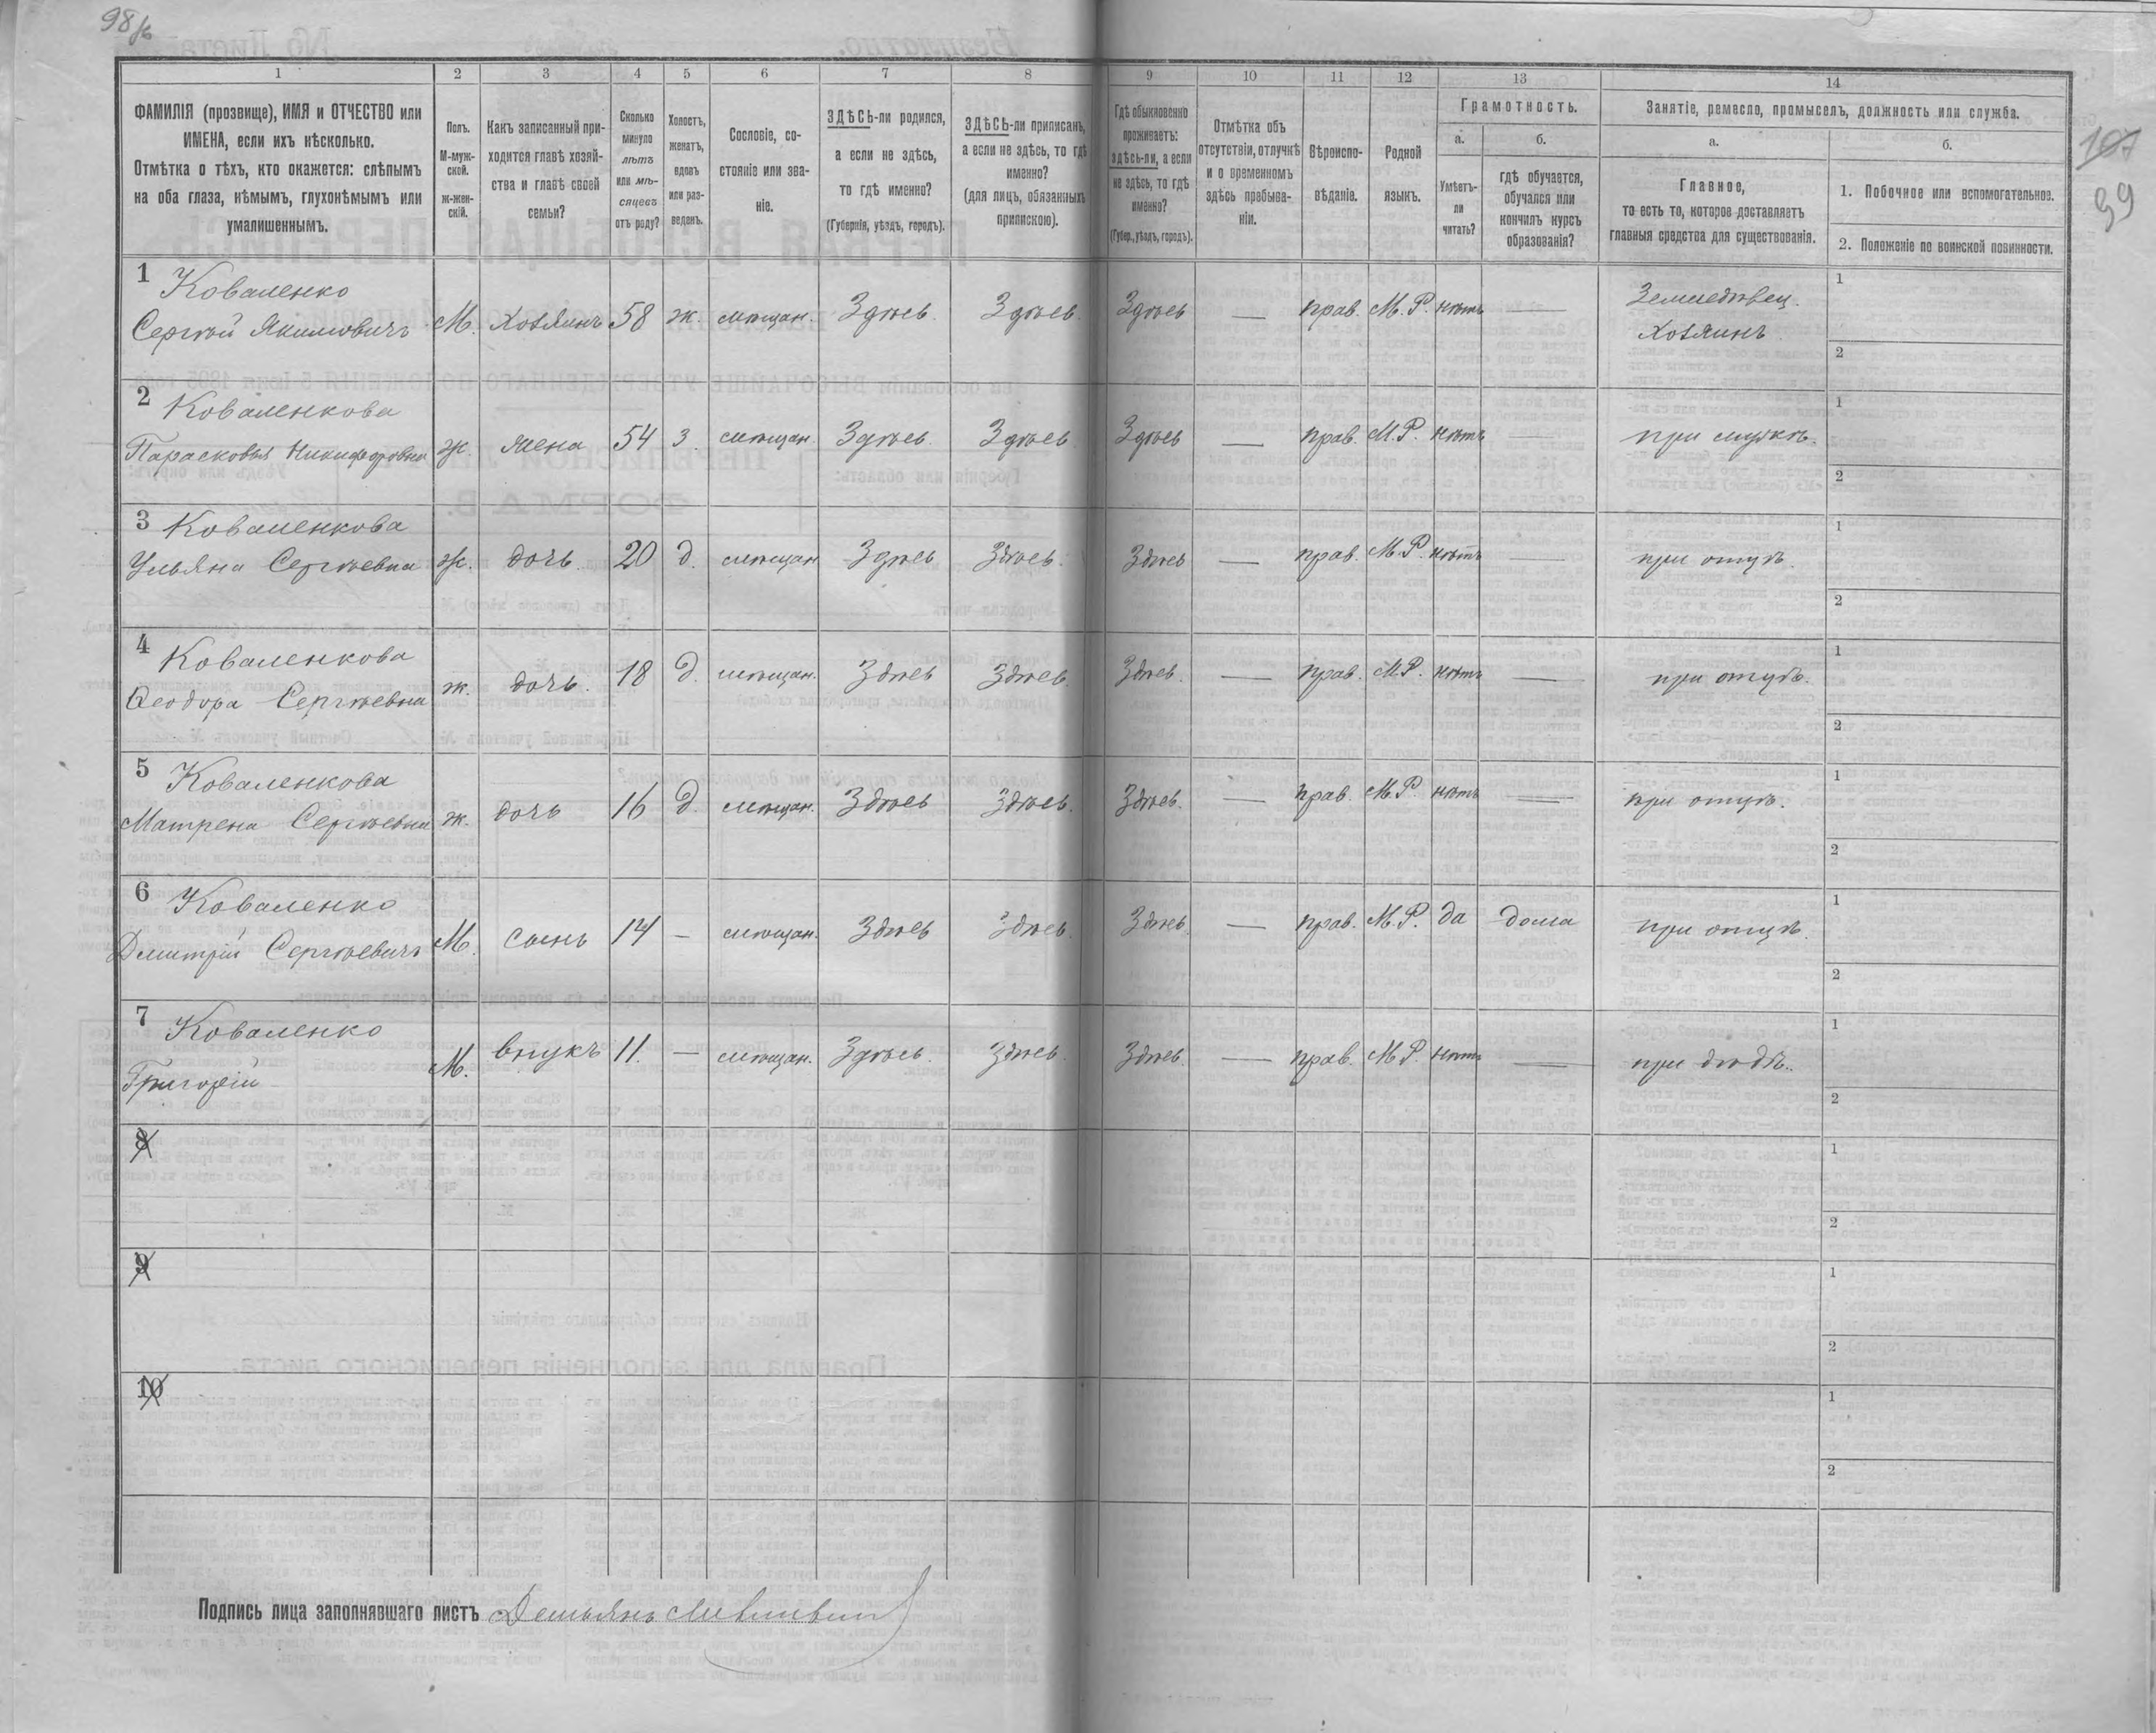 98
1 2 3 4 5 6 7 8 9 10 11 12 13 14
ФАМИЛІЯ (прозвище), ИМЯ и ОТЧЕСТВО или
ИМЕНА, если ихъ нѣсколько.
Отмѣтка о тѣхъ, кто окажется: слѣпымъ
на оба глаза, нѣмымъ, глухонѣмымъ или
умалишеннымъ.
Полъ.
М-муж-
ской.
ж-жен-
скій.
Какъ записанный при-
ходится главѣ хозяй-
ства и главѣ своей
семьи?
Сколько
минуло
лѣтъ
или мѣ-
сяцевъ
отъ роду?
Холостъ,
женатъ,
вдовъ
или раз-
веденъ.
Сословіе, со-
стояніе или зва-
ніе.
ЗДѢСЬ-ли родился,
а если не здѣсь,
то гдѣ именно?
(Губернія, уѣздъ, городъ).
ЗДѢСЬ-ли приписанъ,
а если не здѣсь, то гдѣ
именно?
(для лицъ, обязанныхъ
припискою).
Гдѣ обыкновенно
проживаетъ:
здѣсь-ли, а если
не здѣсь, то гдѣ
именно?
(Губер., уѣздъ, городъ).
Отмѣтка объ
отсутствіи, отлучкѣ
и о временномъ
здѣсь пребыва-
ніи.
Вѣроиспо-
вѣданіе.
Родной
языкъ.
Грамотность.
а. б.
Умѣетъ-
ли
читать?
гдѣ обучается,
обучался или
кончилъ курсъ
образованія?
Занятіе, ремесло, промыселъ, должность или служба.
а. б.
Главное,
то есть то, которое доставляетъ
главныя средства для существованія.
1. Побочное или вспомогательное.
2. Положеніе по воинской повинности.
107
99
1 Коваленко
Сергѣй Якимовичъ М. Хозяинъ 58 ж. мѣщан. Здѣсь. Здѣсь. Здѣсь — прав. М. Р. нѣтъ — Земледѣлец.
Хозяинъ
1
2
2 Коваленкова
Парасковья Никифоровна ж. жена 54 з. мѣщан. Здѣсь. Здѣсь Здѣсь — прав. М. Р. нѣтъ — при мужѣ.
1
2
3 Коваленкова
Ульяна Сергѣевна ж. дочь. 20 д. мѣщан Здѣсь Здѣсь. Здѣсь — прав. М. Р. нѣтъ — при отцѣ.
1
2
4 Коваленкова
Ѳеодора Сергѣевна ж. дочь. 18 д. мѣщан. Здѣсь Здѣсь. Здѣсь. — прав. М. Р. нѣтъ — при отцѣ.
1
2
5 Коваленкова
Матрена Сергѣевна ж. дочь 16 д. мѣщан. Здѣсь Здѣсь. Здѣсь. — прав. М. Р. нѣтъ — при отцѣ.
1
2
6 Коваленко
Дмитрій Сергѣевичъ М. сынъ 14 — мѣщан. Здѣсь Здѣсь. Здѣсь. — прав. М. Р. да дома при отцѣ.
1
2
7 Коваленко
Григорій М. внукъ 11. — мѣщан. Здѣсь. Здѣсь. Здѣсь. — прав. М. Р. нѣтъ — при дѣдѣ.
1
2
8
1
2
9
1
2
10
1
2
Подпись лица заполнявшаго листъ Демьянъ